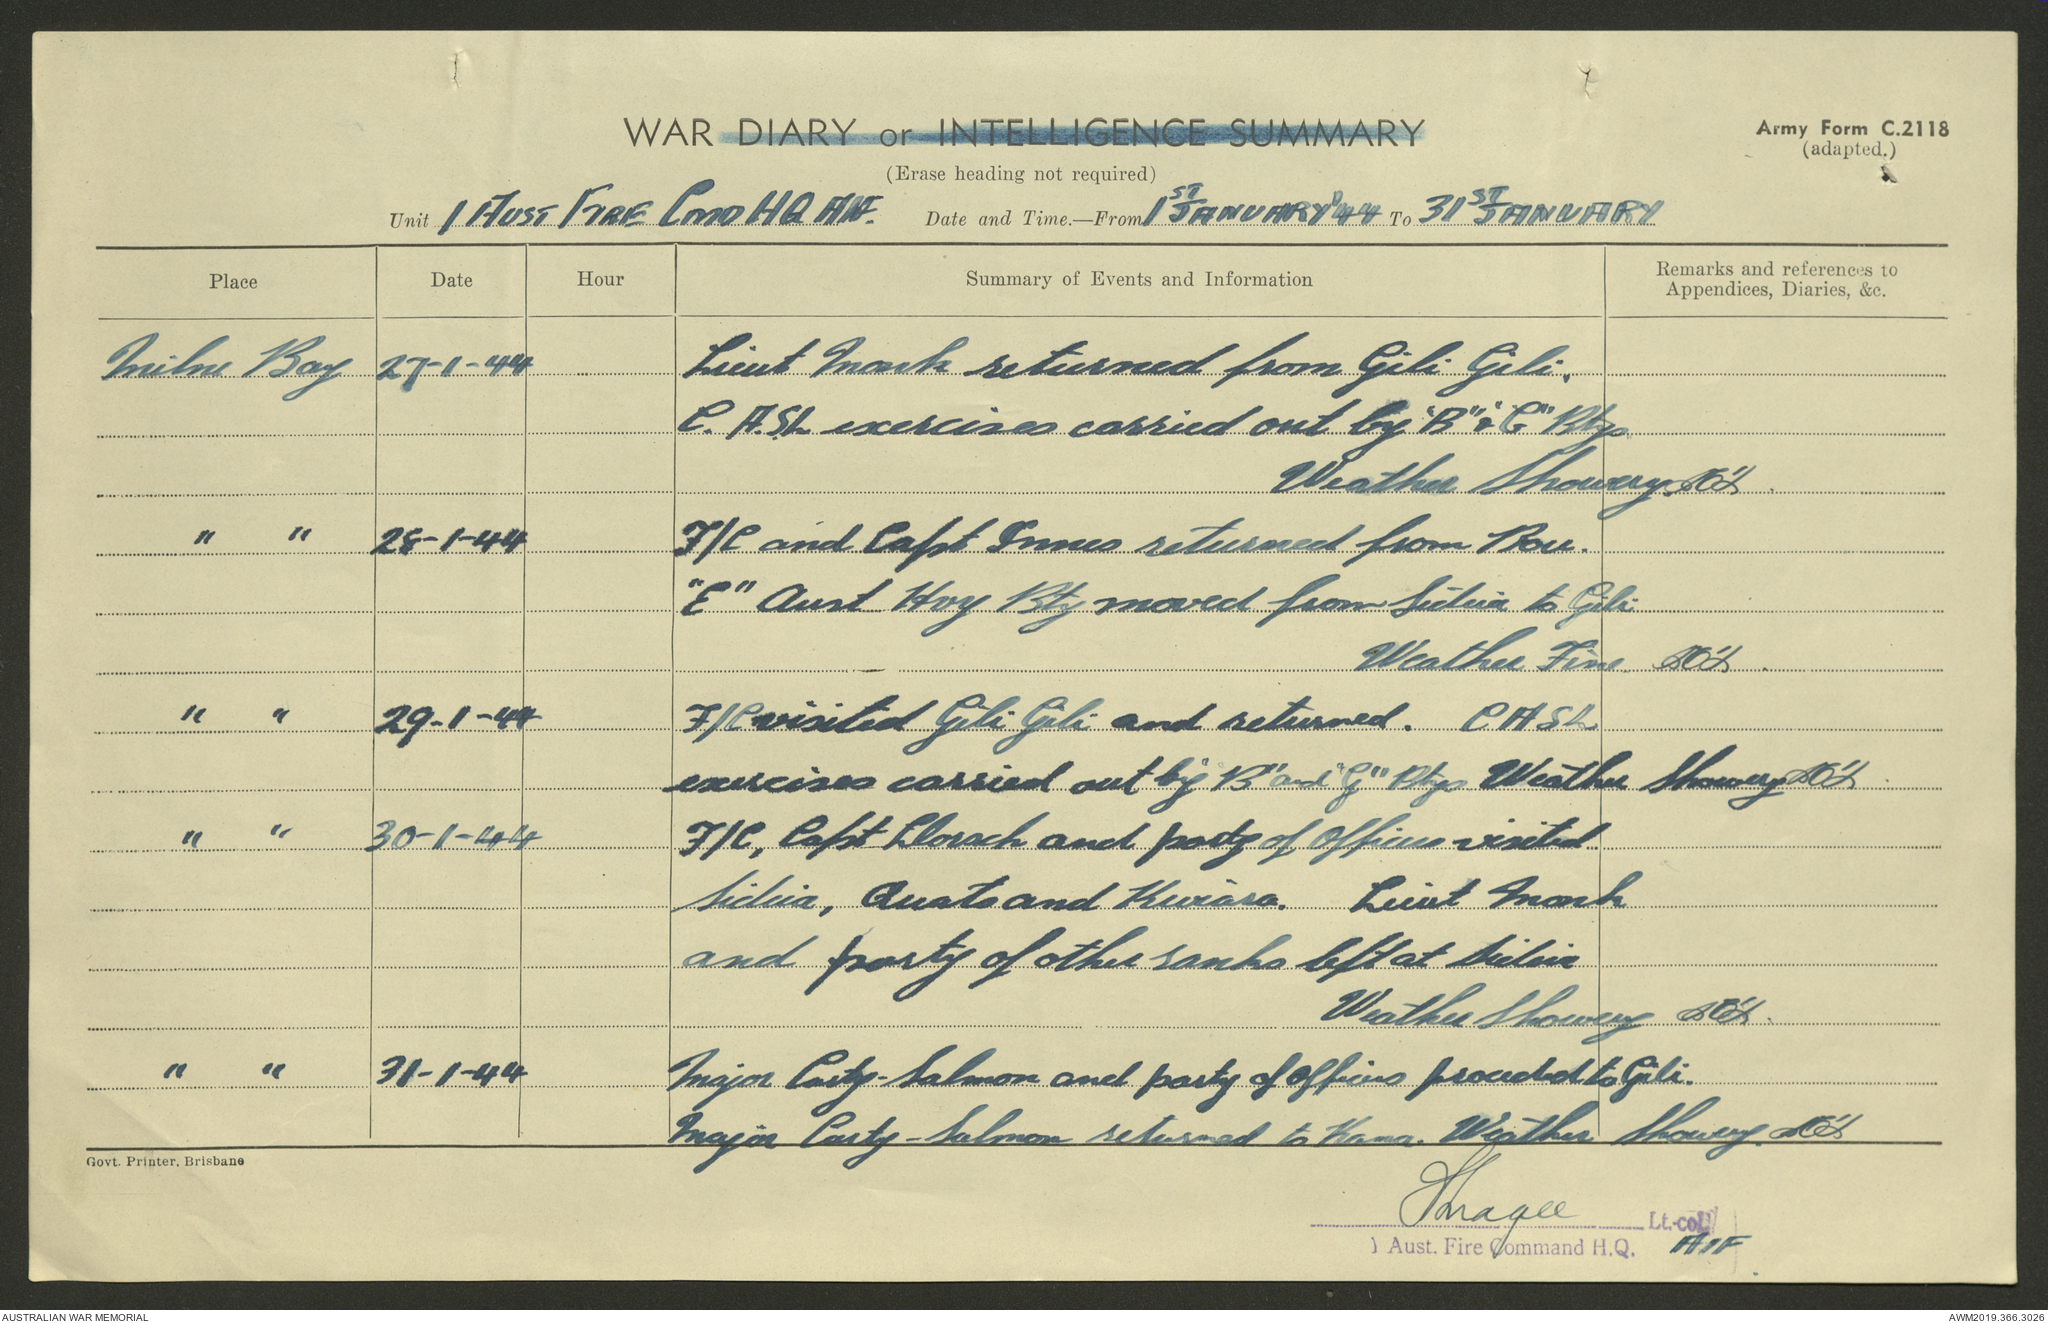 WAR DIARY or INTELLIGENCE SUMMARY
Army Form C.2118
(adapted.)
(Erase heading not required)
Unit 1 AUST FIRE CMD HQ AIF. Date and Time.—From 1ST JANUARY '44 To 31ST JANUARY
Place Date Hour Summary of Events and Information Remarks and references to
Appendices, Diaries, &c.
Milne Bay 27-1-44 Lieut Monk returned from Gili Gili.
C.A.S.L exercises carried out by "B" & "G" Btys
Weather Showery.
" " 28-1-44 F/C and Capt Innes returned from Bou.
"E" Aust Hvy Bty moved from Sideia to Gili
Weather Fine
" " 29-1-44 F/C visited Gili Gili and returned. C A S L
exercises carried out by "B" and "G" Btys Weather Showery
" " 30-1-44 F/C, Capt and party of Officers visited
Sideia, Quato and . Lieut Monk
and party of other ranks left at Sideia
Weather Showery
" " 31-1-44 Major Carty-Salmon and party of Officers proceeded to Gili.
Major Carty-Salmon returned to Kana. Weather Showery.
Govt. Printer, Brisbane
Lt.-col
1 Aust. Fire Command H.Q. AIF
AUSTRALIAN WAR MEMORIAL
AWM2019.366.3026